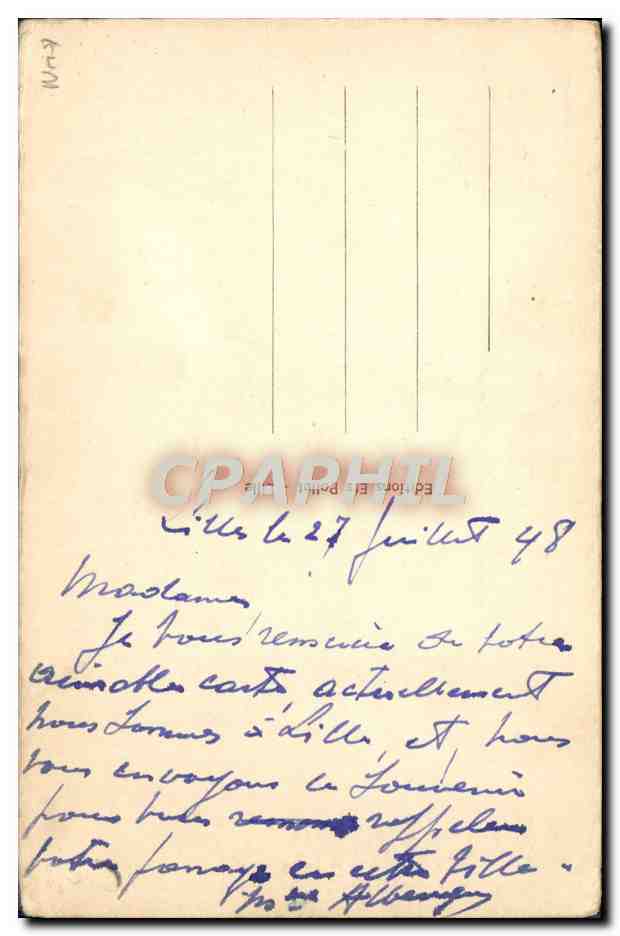 CPAPHIL
Editions Ets Polliot - Lille
Lille le 27 Juillet 48
Madame
Je vous remercie de votre
aimable carte, actuellement
nous sommes à Lille, et, nous
vous envoyons ce souvenir
pour vous rappeler
votre passage en cette ville.
Mme